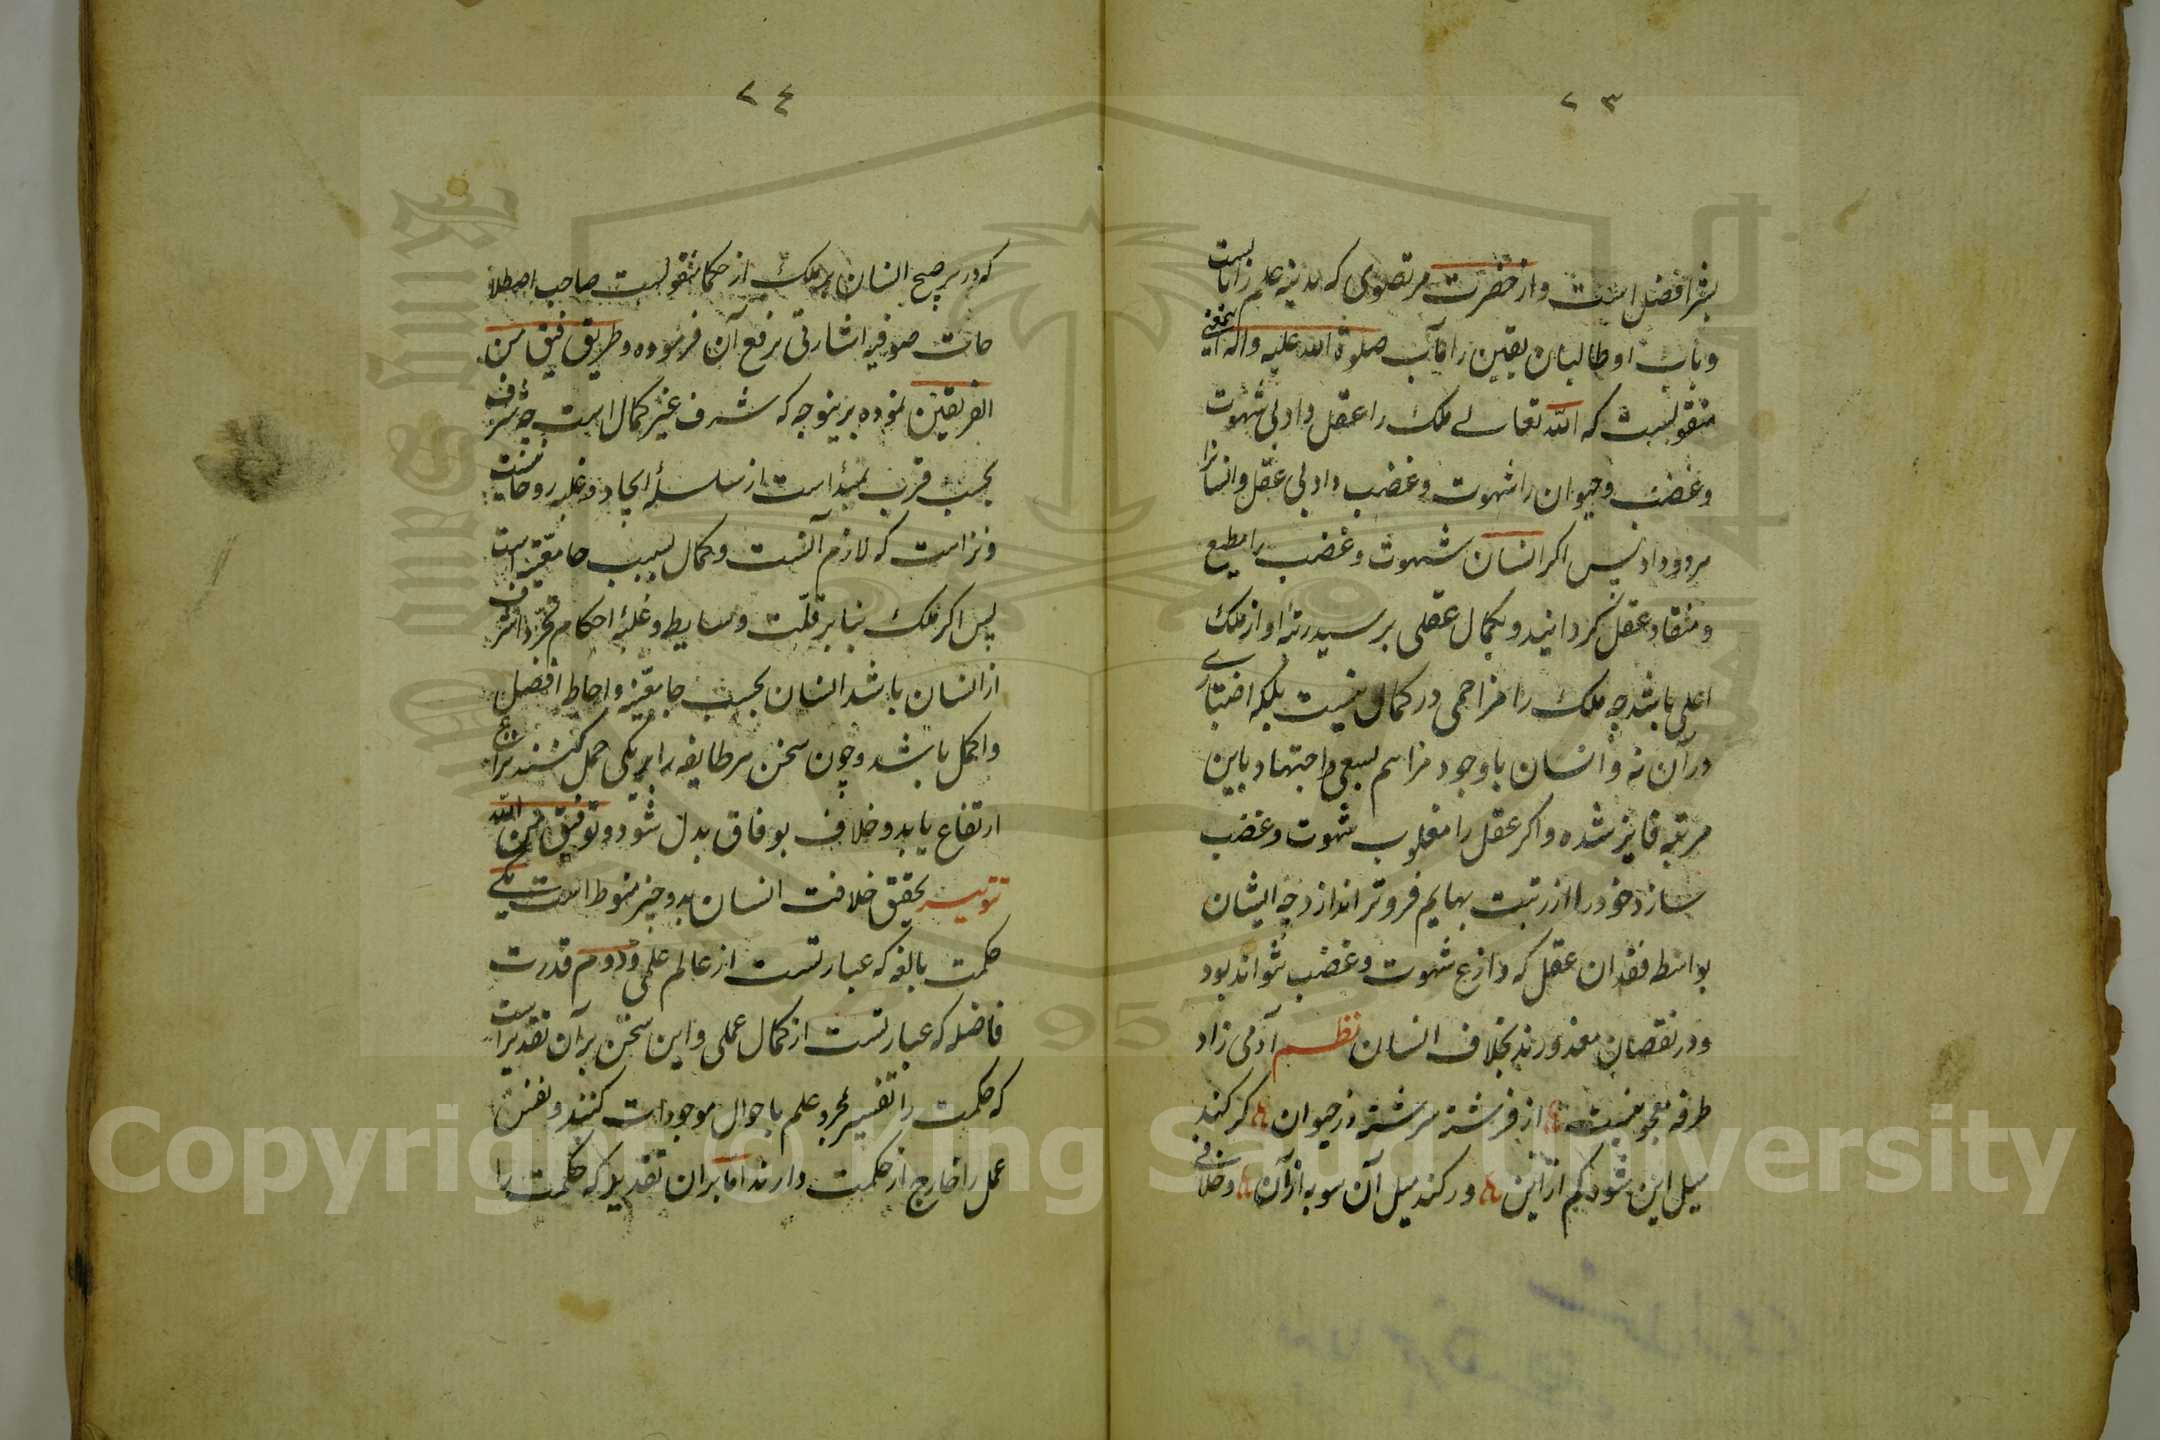 ٢٣
بشر افضل است و از حضرت مرتضوی که مدینه علم را بابست
و باب او طالبان یقین را مآب صلوة الله علیه و اله اینمعنی
منقولست که الله تعالی ملک را عقل داد بی شهوت
و غضب و حیوان را شهوت و غضب داد بی عقل و انسانرا
هر دو داد پس اکر انسان شهوت و غضب را مطیع
و منقاد عقل کرداند و بکمال عقلی برسد رتبهٔ او از ملک
اعلی باشد چه ملک را مزاحمی در کمال نیست بلکه اختیاری
در آن نه و انسان با وجود مزاحم بسعی و اجتهاد باین
مرتبه فایز شده و اکر عقل را مغلوب شهوت و غضب
سازد خود را از رتبت بهایم فروتر اندازد چه ایشان
بواسطه فقدان عقل که وازع شهوت و غضب تواند بود
و در نقصان معذورند بخلاف انسان نظم آدمی زاد
طرفه معجونیست از فرشته سرشته وز حیوان کر کند
میل این شود کم از این ور کند میل آن شود به از آن و خلافی
٢٤
که در ترجیح انسان بر ملک از حکما منقولست صاحب اصطلا
حات صوفیه اشارتی برفع آن فرموده و طریق توفیق من
الفریقین نموده برینوجه که شرف غیر کمال است چه شرف
بحسب قرب بمبدأ است از سلسلهٔ ایجاد و غلبه روحانیت
و نزاهت که لازم آنست و کمال بسبب جامعیة است
پس اکر ملک بنابر قلّت وسایط و غلبهٔ احکام تجرد اشرف
از انسان باشد انسان بحسب جامعیة و احاطه افضل
و اکمل باشد و چون سخن هر طایفه را بر یکی حمل کنند نزاع
ارتفاع یابد و خلاف بوفاق بدل شود و توفیق من الله
تحقیق خلافت انسان بدو چیز منوط است یکی
حکمت بالغه که عبارتست از عالم علمی و دوم قدرت
فاضله که عبارتست از کمال عملی و این سخن بر آن تقدیر است
که حکمت را تفسیر بمجرد علم باحوال موجودات کنند و نفس
عمل را خارج از حکمت دارند اما بران تقدیر که حکمت را
Copyright © King Saud University